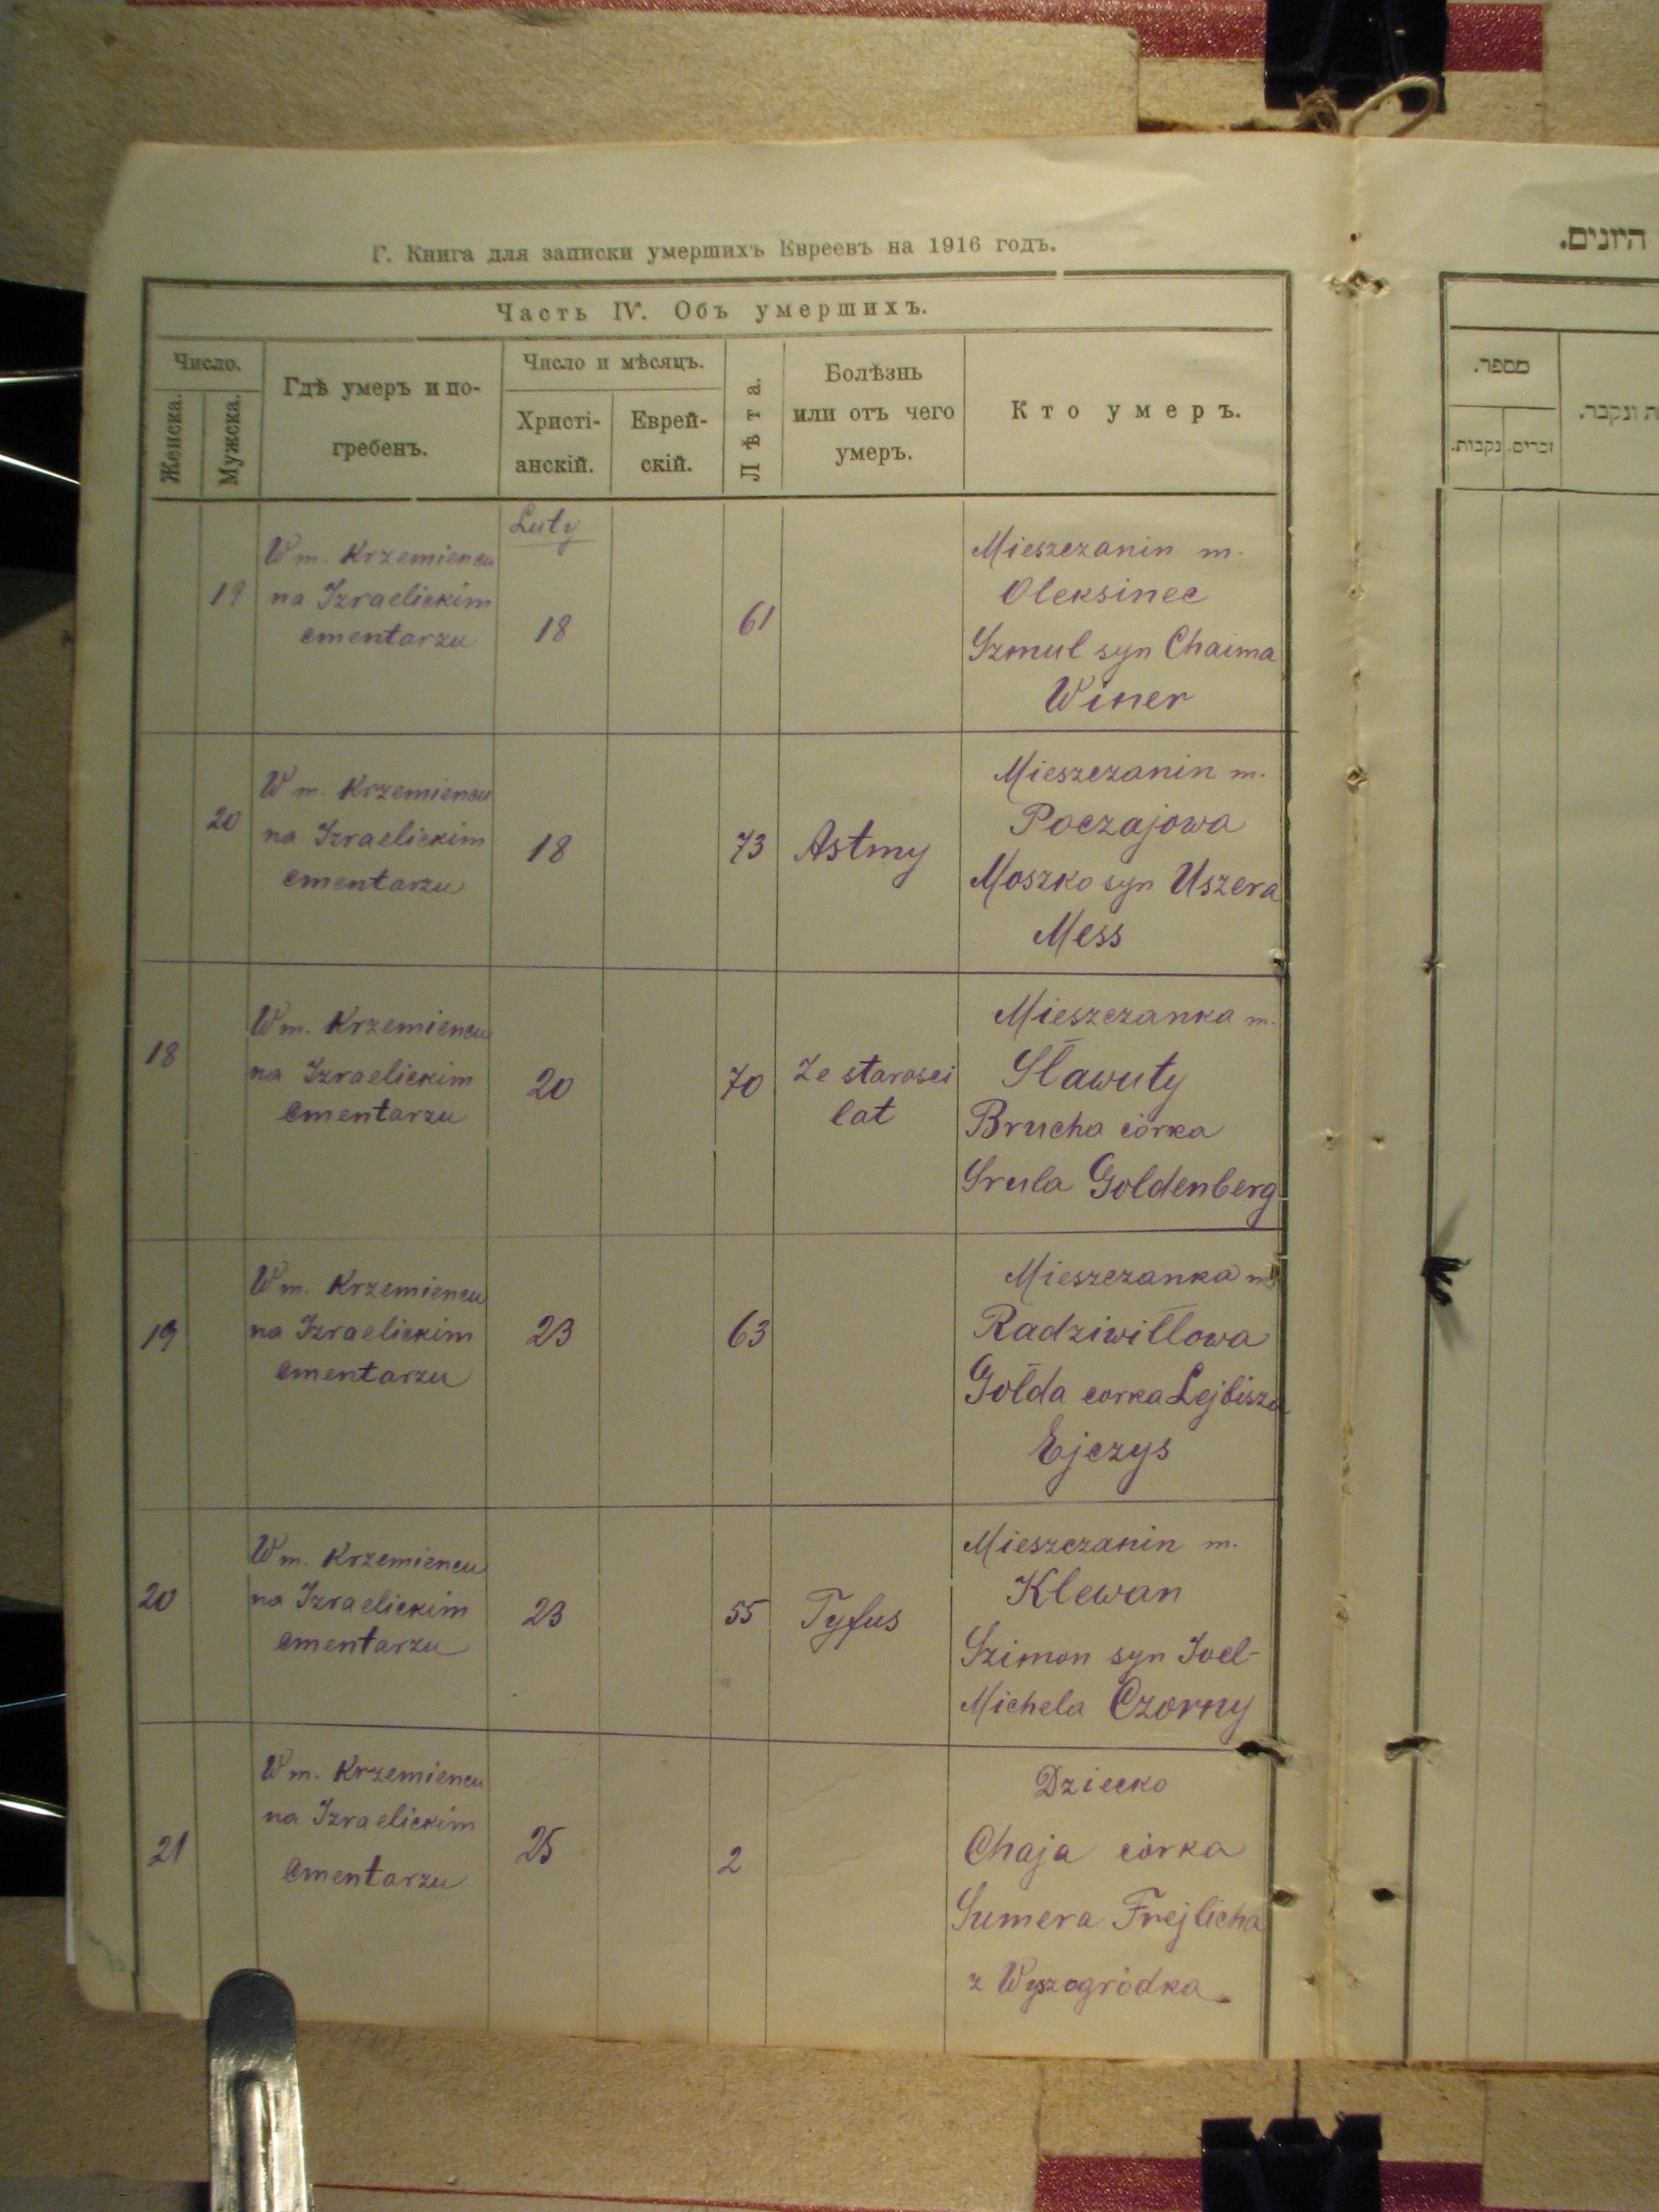 Г. Книга для записки умершихъ Евреевъ на 1916 годъ.
Часть IV. Объ умершихъ.
Число.
Женска.
Мужска.
Гдѣ умеръ и по-
гребенъ.
Число и мѣсяцъ.
Христі-
анскій.
Еврей-
скій.
Лѣта.
Болѣзнь
или отъ чего
умеръ.
Кто умеръ.
Luty
19
W m. Krzemiencu
na Izraelickim
cmentarzu
18
61
Mieszczanin m.
Oleksinec
Szmul syn Chaima
Winer
20
W m. Krzemiencu
na Izraelickim
cmentarzu
18
73
Astmy
Mieszczanin m.
Poczajowa
Moszko syn Uszera
Mess
18
W m. Krzemiencu
na Izraelickim
cmentarzu
20
70
Ze starosci
lat
Mieszczanka m.
Sławuty
Brucha córka
Srula Goldenberg
19
W m. Krzemiencu
na Izraelickim
cmentarzu
23
63
Mieszczanka m.
Radziwiłłowa
Gołda corka Lejbisza
Ejczys
20
W m. Krzemiencu
na Izraelickim
cmentarzu
23
55
Tyfus
Mieszczanin m.
Klewan
Szimon syn Joel-
Michela Czorny
21
W m. Krzemiencu
na Izraelickim
cmentarzu
25
2
Dziecko
Chaja córka
Sumera Frejlicha
z Wyszogródka
היונים.
מספר.
זכרים.
נקבות.
ונקבר.